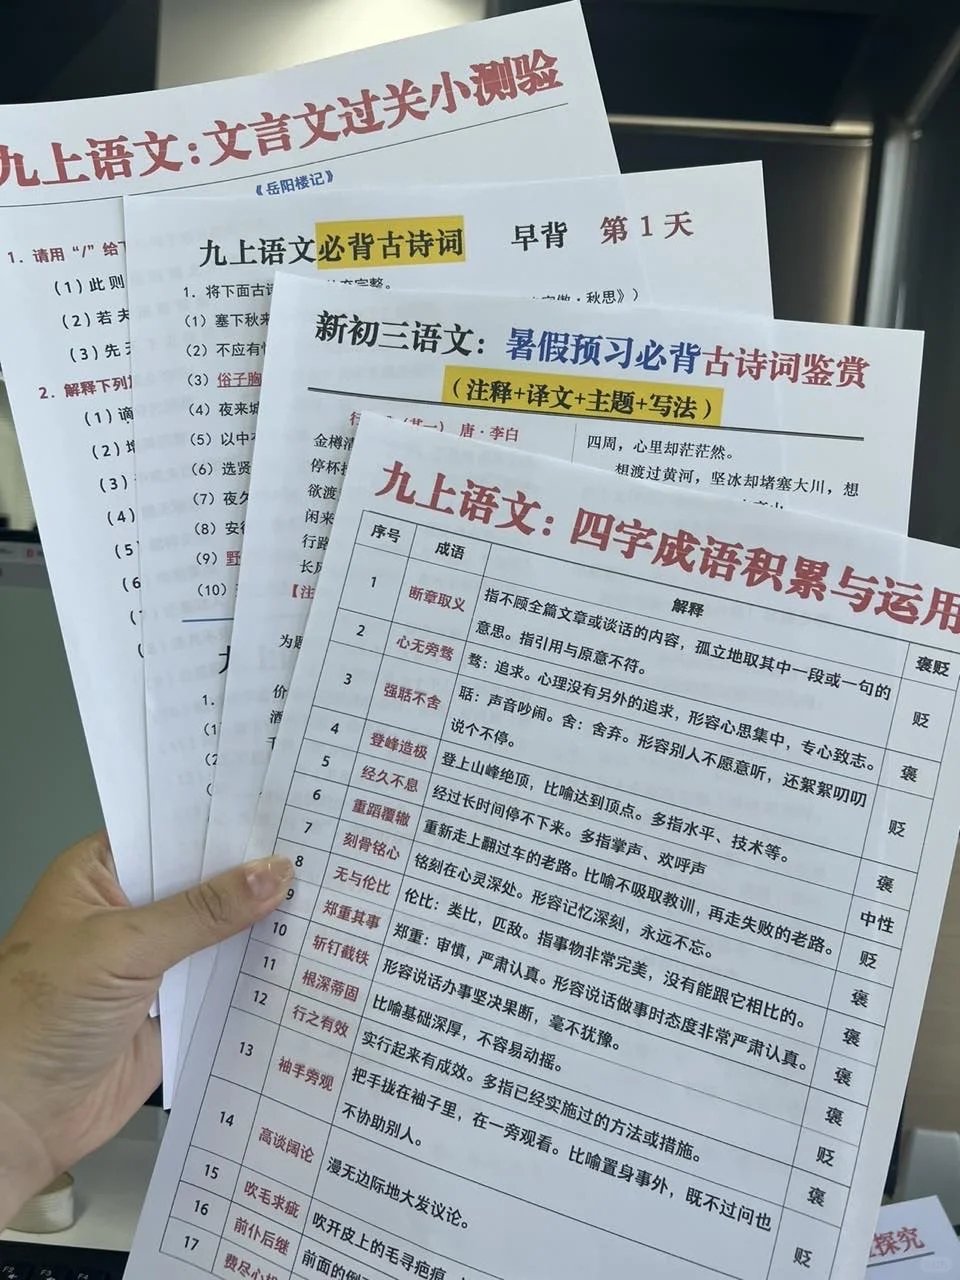 九上语文：文言文过关小测验
《岳阳楼记》
1. 请用“/”给
(1) 此则
(2) 若夫
(3) 先天
2. 解释下列
(1) 谪
(2) 增
(3)
(4)
(5)
(6)
九上语文必背古诗词 早背 第1天
1. 将下面古诗
(1) 塞下秋来
秋思》)
(2) 不应有
(3) 俗子胸
(4) 夜来城
(5) 以中
(6) 选贤
(7) 夜久
(8) 安得
(9) 野
(10)
1.
(1)
(2)
新初三语文：暑假预习必背古诗词鉴赏
(注释+译文+主题+写法)
唐·李白
金樽清
停杯投
欲渡
闲来
行路
长风
【注
为题
价
酒
千
四周，心里却茫茫然。
想渡过黄河，坚冰却堵塞大川，想
九上语文：四字成语积累与运用
序号 成语 解释 褒贬
1 断章取义 指不顾全篇文章或谈话的内容，孤立地取其中一段或一句的
意思。指引用与原意不符。 贬
2 心无旁骛 骛：追求。心理没有另外的追求，形容心思集中，专心致志。 褒
3 强聒不舍 聒：声音吵闹。舍：舍弃。形容别人不愿意听，还絮絮叨叨
说个不停。 贬
4 登峰造极 登上山峰绝顶，比喻达到顶点。多指水平、技术等。 褒
5 经久不息 经过长时间停不下来。多指掌声、欢呼声 中性
6 重蹈覆辙 重新走上翻过车的老路。比喻不吸取教训，再走失败的老路。 贬
7 刻骨铭心 铭刻在心灵深处。形容记忆深刻，永远不忘。 褒
8 无与伦比 伦比：类比，匹敌。指事物非常完美，没有能跟它相比的。 褒
9 郑重其事 郑重：审慎，严肃认真。形容说话做事时态度非常严肃认真。 褒
10 斩钉截铁 形容说话办事坚决果断，毫不犹豫。 褒
11 根深蒂固 比喻基础深厚，不容易动摇。 贬
12 行之有效 实行起来有成效。多指已经实施过的方法或措施。 褒
13 袖手旁观 把手拢在袖子里，在一旁观看。比喻置身事外，既不过问也
不协助别人。 贬
14 高谈阔论 漫无边际地大发议论。
15 吹毛求疵 吹开皮上的毛寻疤痕
16 前仆后继 前面的倒
17 费尽心机
探究